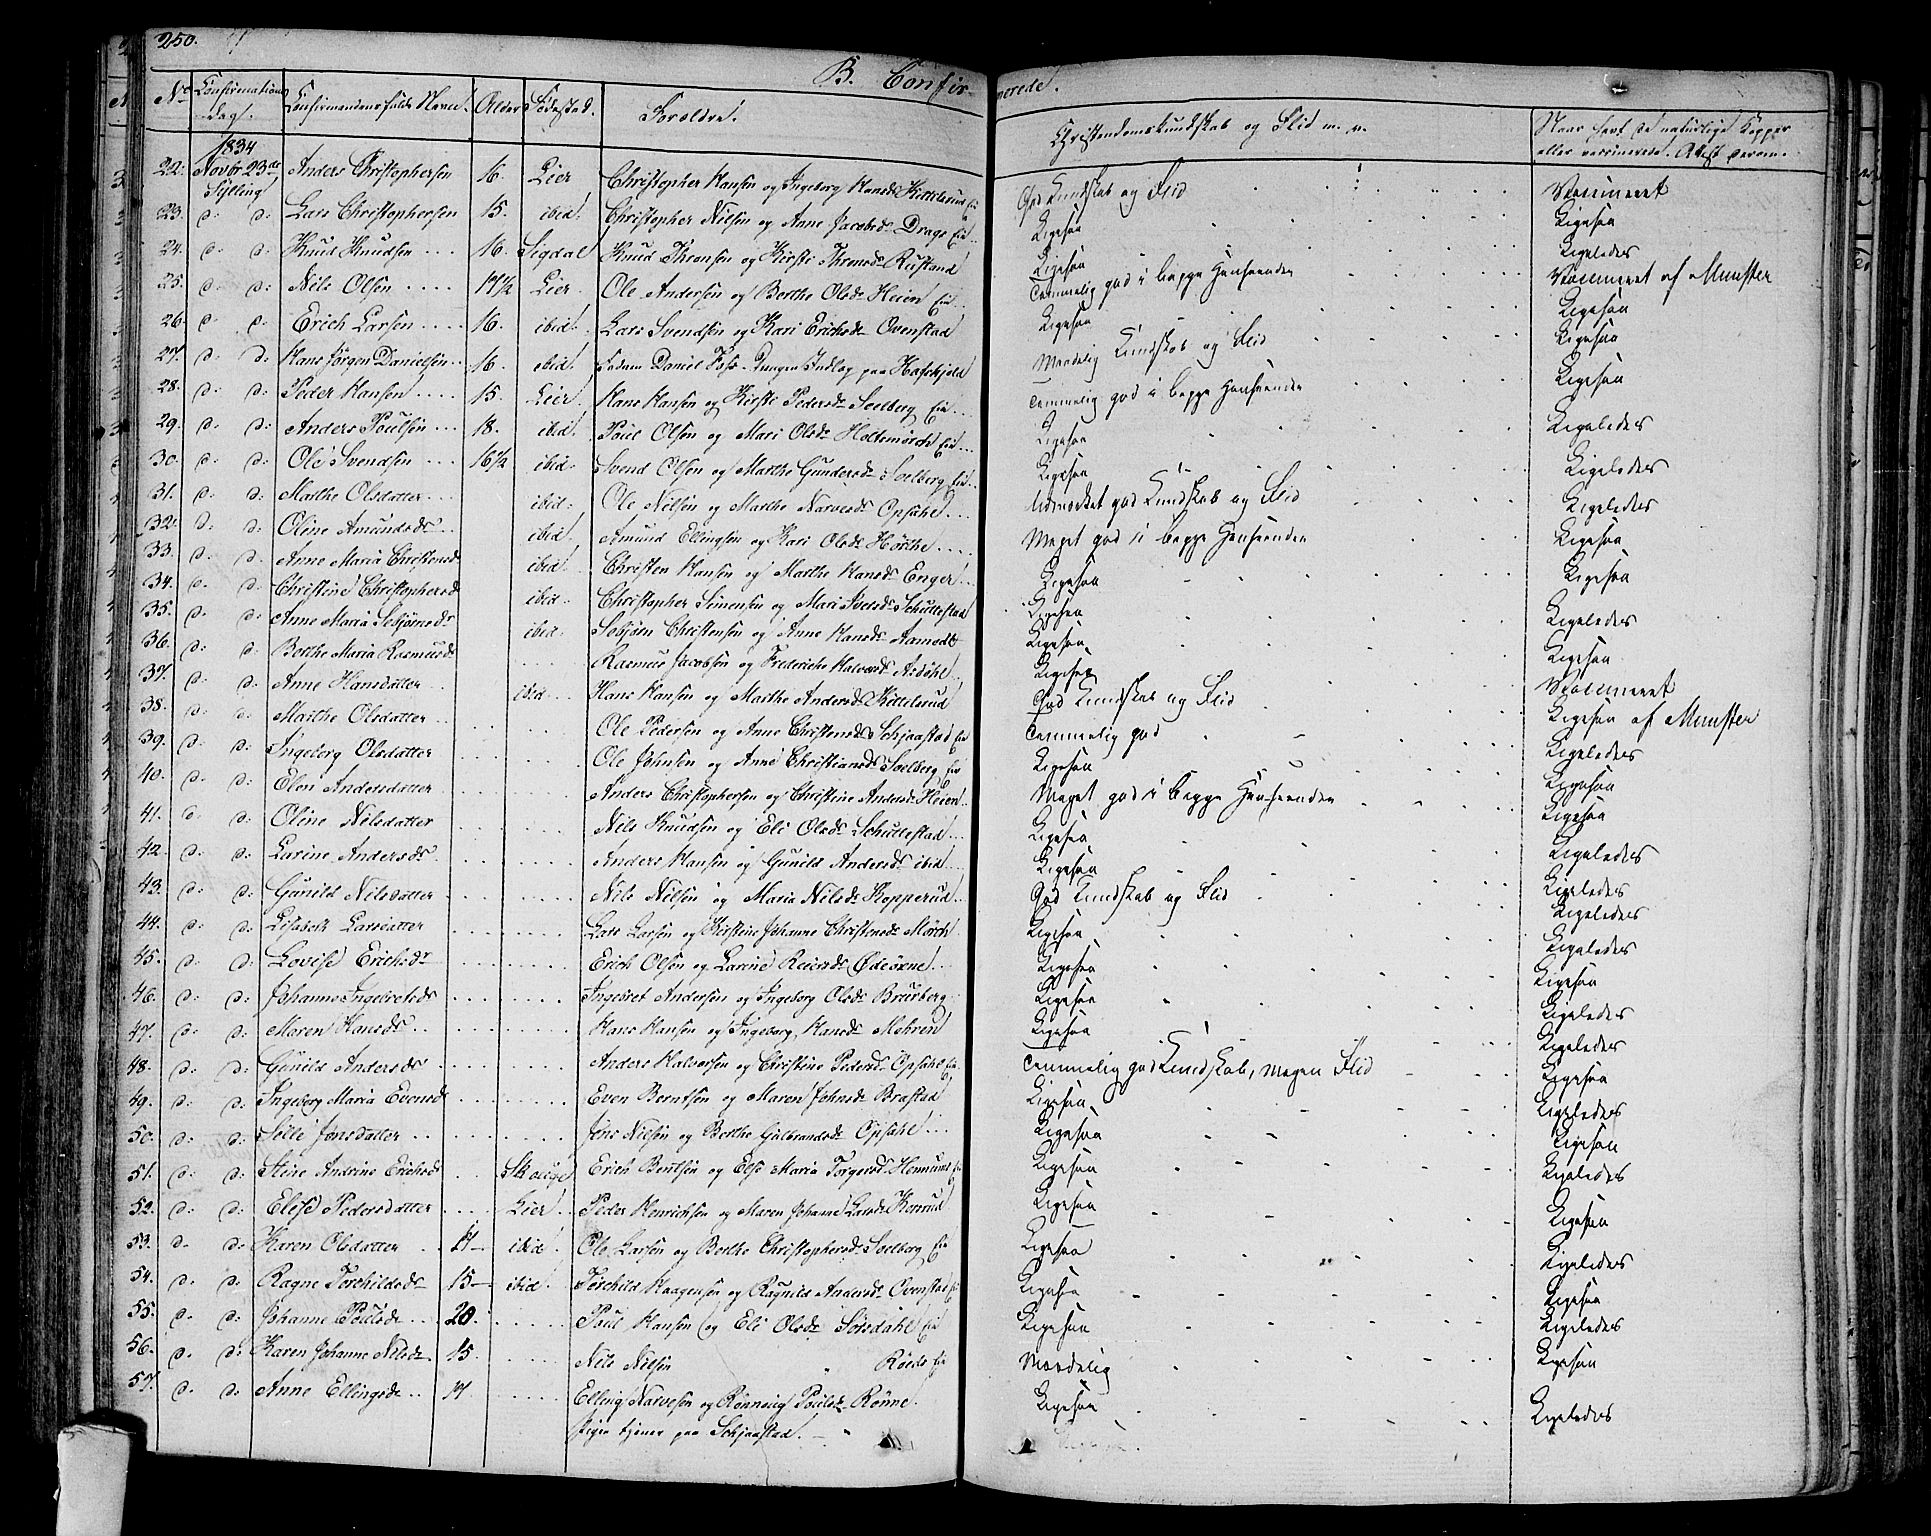 250.
B. Confir-
merede.
No Confirmations Dag. Confirmandens fulde Navn. Alder Födested. Forældre. Christendomskundskab og Flid m. v. Naar havt de naturlige Kopper eller vaccinerede. Attest derom.
1834
22. Novbr 23de Anders Christophersen 16. Lier Christopher Hansen og Ingeborg Hansd. Kittelsrud Eie God Kundskab og Flid Vaccineret
Sylling
23. d: d: Lars Christophersen 15. ibid. Christopher Nielsen og Anne Jacobsd. Drags Eie Ligesaa Ligesaa
24. d: d: Knud Knudsen 16. Sigdal Knud Thronsen og Kirsti Thronsd. Rustand Ligesaa Ligeledes
25. d: d: Nils Olsen 17½ Lier Ole Andersen og Berthe Olsd. Heien Eie Temmelig god i begge Henseender Vaccineret af Munster
26. d: d: Erich Larsen 16. ibid: Lars Svendsen og Kari Erichsdr Ovenstad Ligesaa Ligesaa
27. d: d: Hans Jörgen Danielsen 16. ibid: Daniel Foss Drengen Indlag paa Haskjold Maadelig Kundskab og Flid Ligesaa
28. d: d: Peder Hansen 15. Lier Hans Hansen og Kirsti Pedersdr Svelberg Eie Temmelig god i begge Henseender Ligesaa
29. d: d: Anders Poulsen 18. ibid. Poul Olsen og Mari Olsdr Holtsmörch Eie Ligesaa Ligeledes
30. d: d: Ole Svendsen 16½ ibid: Svend Olsen og Marthe Gundersd. Svelberg Eie Ligesaa Ligeledes
31. d: d: Marthe Olsdatter ibid: Ole Nilsen og Marthe Narvesd. Opsahl Udmærket god Kundskab og Flid Ligeledes
32. d: d: Oline Amundsdr ibid. Amund Ellingsen og Kari Olsdr Hörthe Meget god i begge Henseender Ligesaa
33. d: d: Anne Maria Christensd ibid. Christen Hansen og Marthe Hansd. Enger Ligesaa Ligesaa
34. d: d: Christine Christophersd ibid. Christopher Simensen og Mari Iversd. Schullestad Ligesaa Ligeledes
35. d: d: Anne Maria Sebjörnsdr ibid. Sebjörn Christensen og Anne Hansd. Aamodt Ligesaa Ligesaa
36. d: d: Berthe Maria Rasmusd. Rasmus Jacobsen og Frederiche Halvorsd. Ligesaa Vaccineret
37. d: d: Anne Hansdatter ibid Hans Hansen og Marthe Andersd. Kittelsrud God Kundskab og Flid Ligesaa af Munster
38. d: d: Marthe Olsdatter Ole Pedersen og Anne Christensd. Schjaastad Eie Temmelig god Ligeledes
39. d: d: Ingeborg Olsdatter Ole Johnsen og Anne Christiansd. Svelberg Eie Ligesaa Ligesaa
40. d: d: Elen Andersdatter Anders Christophersen og Christine Andersd. Heien Meget god i begge Henseender Ligesaa
41. d: d: Oline Nilsdatter Nils Knudsen og Eli Olsdr Schullestad Ligesaa Ligeledes
42. d: d: Larine Andersdr Anders Hansen og Gunild Andersd. ibid Ligesaa Ligeledes
43. d: d: Gunild Nilsdatter Nils Nilsen og Maria Nilsdr Kopperud God Kundskab og Flid Ligeledes
44. d: d: Lisabeth Larsdatter Lars Larsen og Kirstine Johanne Christensd. Mörch Ligesaa Ligeledes
45. d: d: Lovise Erichsdr Erich Olsen og Larine Reiersd. Ödeörne Ligesaa Ligesaa
46. d: d: Johanne Ingebretsd. Ingebret Andersen og Ingeborg Olsd. Bruberg Ligesaa Ligeledes
47. d: d: Maren Hansdr Hans Hansen og Ingeborg Hansdr Mehren Ligesaa Ligeledes
48. d: d: Gunild Andersdr Anders Halvorsen og Christine Pedersd. Opsahl Eie Temmelig god Kundskab, megen Flid Ligesaa
49. d: d: Ingeborg Maria Evensd Even Berntsen og Maren Johnsd. Brastad Ligesaa Ligeledes
50. d: d: Sille Jensdatter Jens Nielsen og Berthe Gulbrandsd. Opsahl Ligesaa Ligesaa
51. d: d: Stine Andrine Erichsd Skouge Erich Bentsen og Else Maria Torgersd. Hennum Eie Ligesaa Ligeledes
52. d: d: Elise Pedersdatter Lier Peder Henrichsen og Maren Johanne Larsd. Renskud Ligesaa Ligesaa
53. d. d: Karen Olsdatter 17 ibid. Ole Larsen og Berthe Christophersd. Svelberg Eie Ligesaa Ligeledes
54. d: d: Ragne Torchildsdr 15 ibid. Torchild Haagensen og Ragnild Andersd. Ovenstad Eie Ligesaa Ligesaa
55. d: d: Johanne Poulsdr 20. Paul Hansen og Eli Olsdr Sörsdahl Eie Ligesaa Ligeledes
56. d: d: Karen Johanne Nilsdr 15. Nils Nilsen " Röeds Eie Maadelig Ligesaa
57. d: d: Anne Ellingsdr 17 Elling Narvesen og Rönnaug Poulsdr Rönne. Ligesaa Ligeledes
Pigen tjener paa Schjaastad.